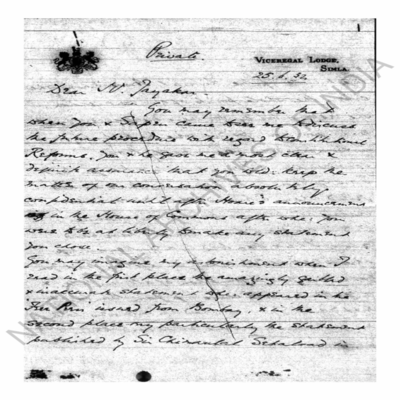 Private.
VICEREGAL LODGE,
SIMLA.
25.6.32.
Dear Mr Jayakar
You may remember that
when you & Sapru came to see me to discuss
the future procedure with regard Constitutional
Reforms, you & he gave me a most clear &
definite assurance that you would keep the
matter of our conversation absolutely
confidential until after Hoare's announcement
in the House of Commons, after wh: you
were to be at liberty to make any statement
you chose.
You may imagine my astonishment when I
read in the first place the amazingly
& inaccurate statement wh: appeared in the
Free Press issued from Bombay, & in the
second place more particularly the statement
published by Sir Chimanlal Setalvad in
NATIONAL ARCHIVES OF INDIA